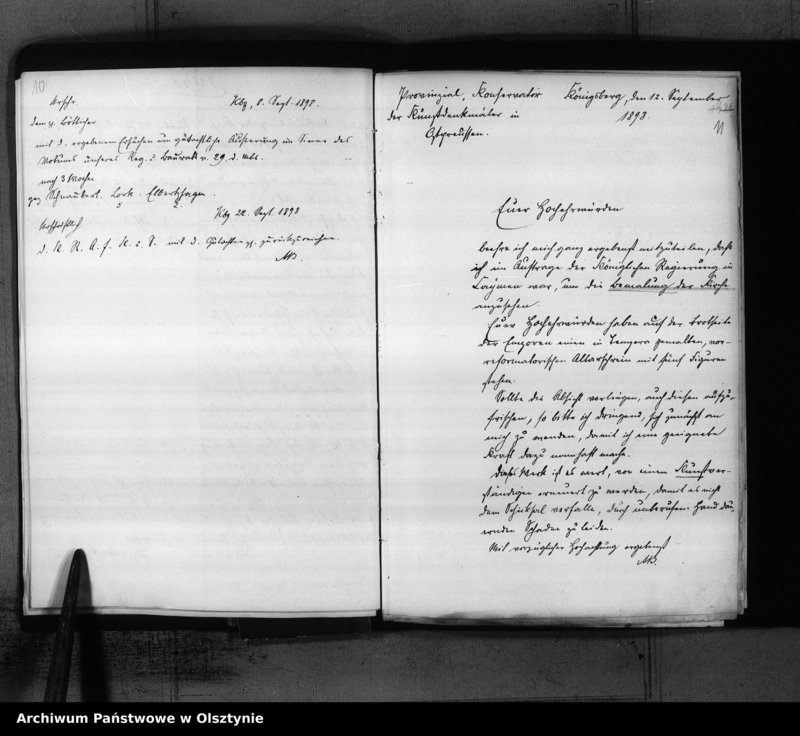 10
Abschr.
Kbg, 8. Sept. 1893.
dem H. Bötticher
mit d. ergebenen Ersuchen um gutachtliche Äußerung im Sinne des
Votums unseres Reg. u. Baurats v. 29. d. Mts.
nach 3 Wochen
gez Schnaubert. Lork.
Kbg 22. Sept. 1893
Urschriftlich
d. K. R. A. f. K. u. S. mit d. Gutachten zurückzureichen.
AB.
Provinzial, Konservator
der Kunstdenkmäler in
Ostpreussen.
Königsberg, den 12. September
1893.
11
Euer Hochehrwürden
beehre ich mich ganz ergebenst mitzuteilen, daß
ich im Auftrage der Königlichen Regierung in
Caymen war, um die Bemalung der Kirche
anzusehen.
Euer Hochehrwürden haben auf der Nordseite
der Emporen einen in Tempera gemalten, vor-
reformatorischen Altarschrein mit fünf Figuren
stehen.
Sollte die Absicht vorliegen, auch diesen aufzu-
frischen, so bitte ich dringend, sich zunächst an
mich zu wenden, damit ich eine geeignete
Kraft dazu namhaft mache.
Dieses Werk ist es wert, von einem Kunstver-
ständigen erneuert zu werden, damit es nicht
dem Schicksal verfalle, durch unberufene Hand dau-
ernden Schaden zu leiden.
Mit vorzüglicher Hochachtung ergebenst
AB.
Archiwum Państwowe w Olsztynie